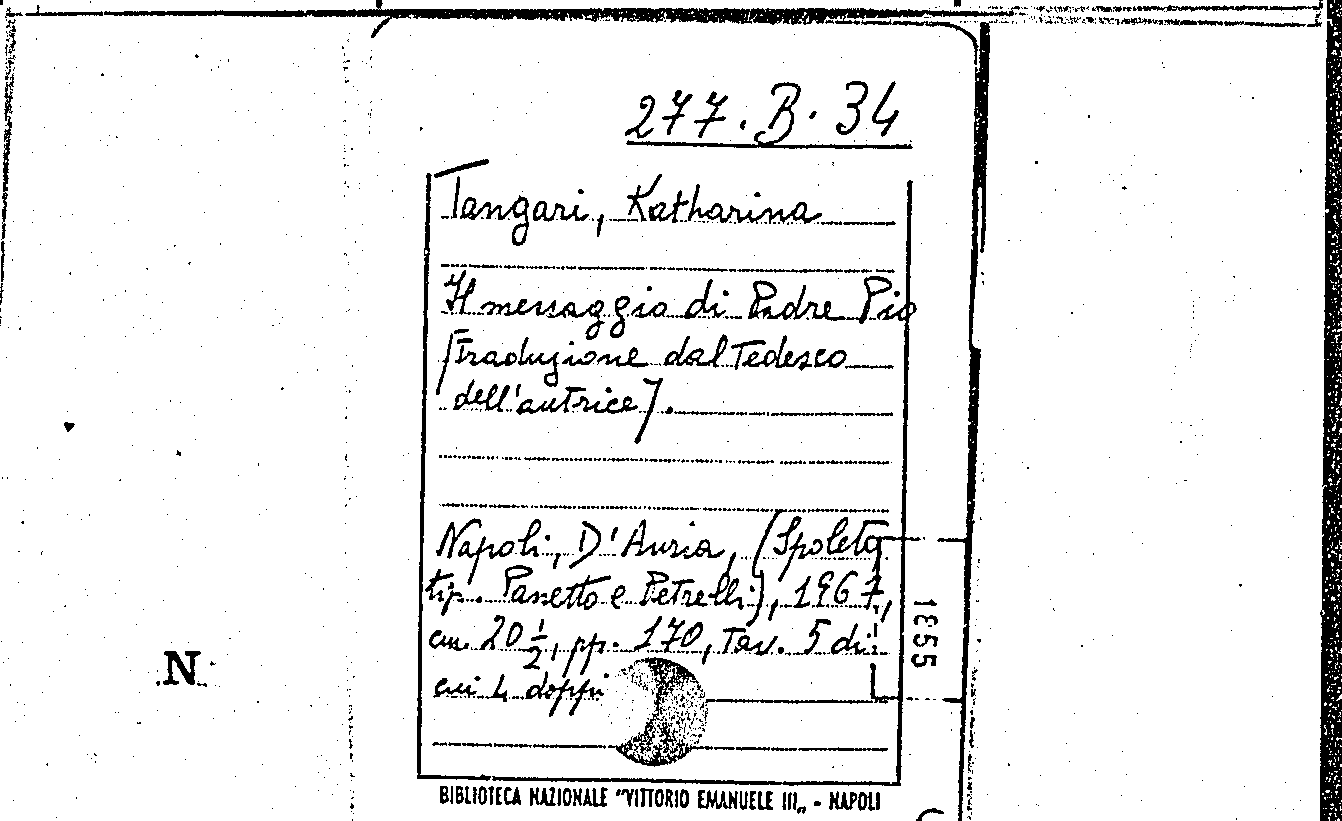 277.B.34
Tangari, Katharina
Il messaggio di Padre Pio
[Traduzione dal Tedesco
dell'autrice].
Napoli, D'Auria, (Spoleto
tip. Panetto e Petrelli), 1967,
cm 20 1/2, pp. 170, Tav. 5 di
cui 4 doppi
1855
N
BIBLIOTECA NAZIONALE "VITTORIO EMANUELE III„ - NAPOLI